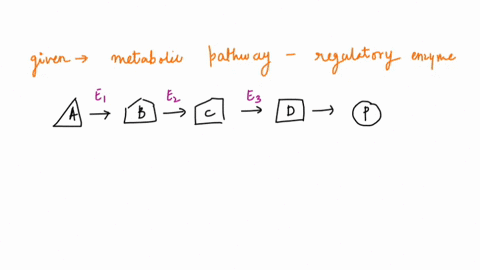 given → metabolic pathway – regulatory enzyme
E1 E2 E3
A → B → C → D → P